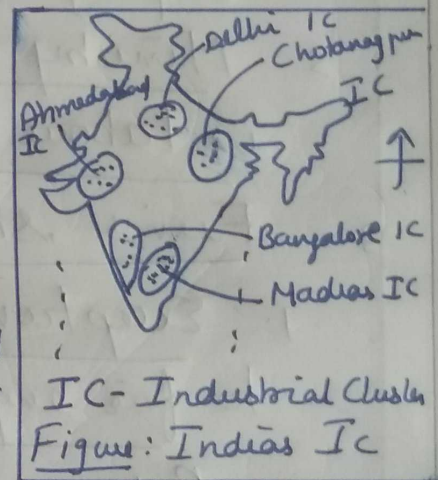 Delhi IC
Chotanagpur
IC
Ahmedabad
IC
Bangalore IC
Madras IC
IC- Industrial Cluster
Figure: Indias Ic